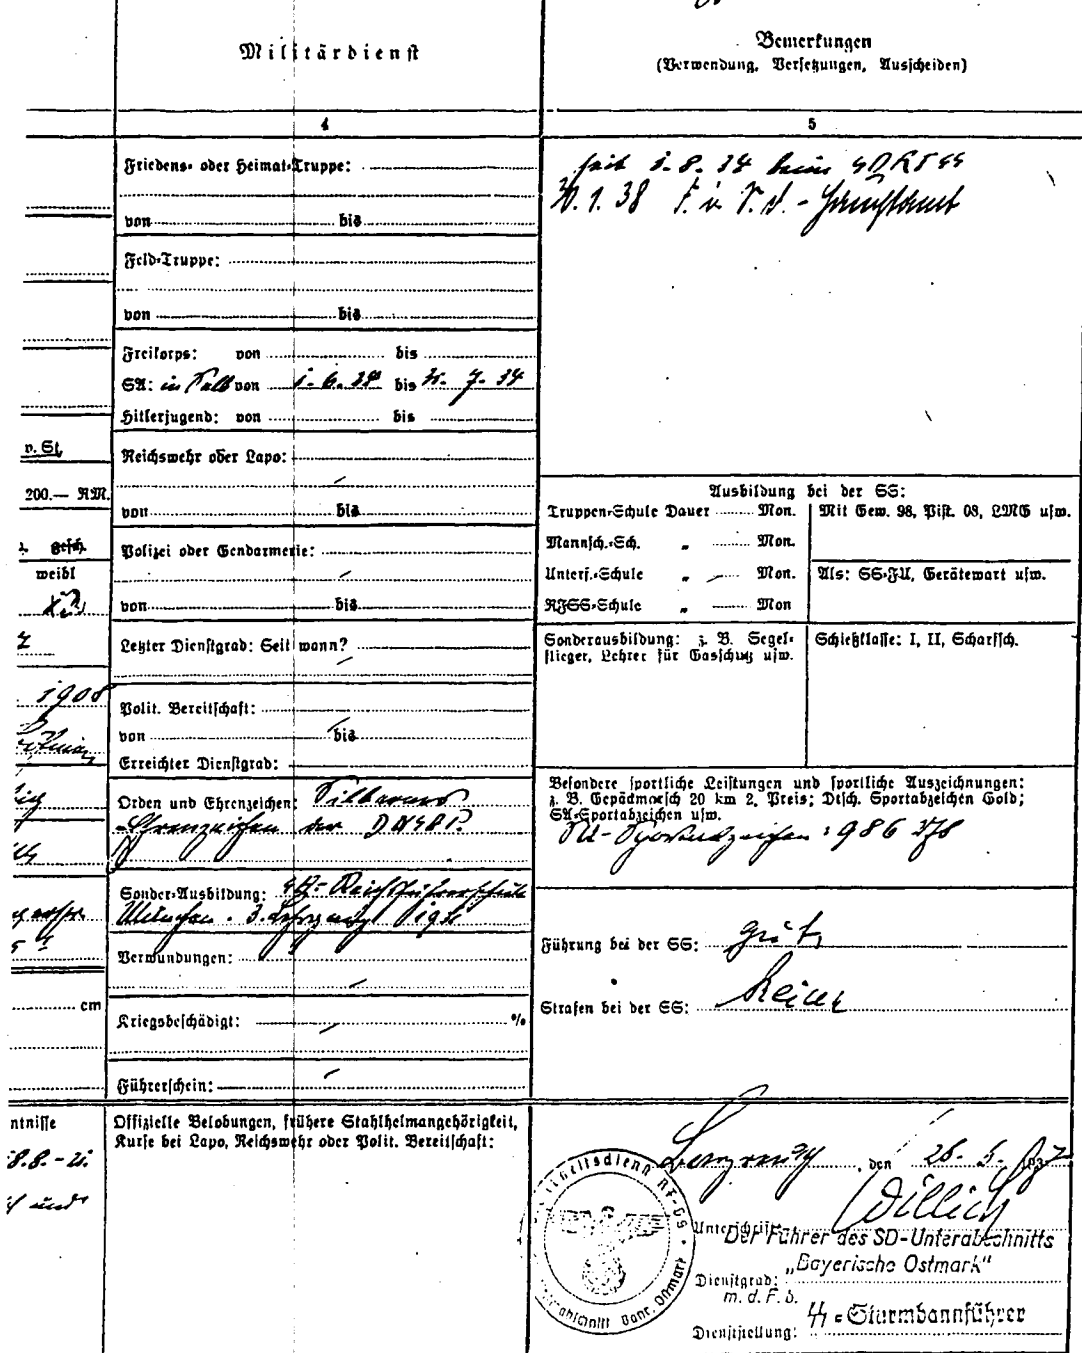 Militärdienst
Bemerkungen
(Verwendung, Versetzungen, Ausscheiden)
4
5
Friedens- oder Heimat-Truppe:
von bis
Feld-Truppe:
von bis
Freikorps: von bis
SA: in von 1. 6. bis 31. 7. 34
Hitlerjugend: von bis
Reichswehr oder Lapo:
von bis
Polizei oder Gendarmerie:
von bis
Letzter Dienstgrad: Seit wann?
Polit. Bereitschaft:
von bis
Erreichter Dienstgrad:
Orden und Ehrenzeichen: Silbernes
Ehrenzeichen der DNSAP.
Sonder-Ausbildung: SA-Reichsführerschule
München. 3. Lehrgang 1931
Verwundungen:
Kriegsbeschädigt: %
Führerschein:
Offizielle Belobungen, frühere Stahlhelmangehörigkeit,
Kurse bei Lapo, Reichswehr oder Polit. Bereitschaft:
v. St.
200.— RM.
gesch.
weibl
1908
cm
ntnisse
und
seit 1. 8. 34 beim SD RFSS
30. 1. 38 F. i. S. d. - Hauptamt
Ausbildung bei der SS:
Truppen-Schule Dauer Mon.
Mannsch.-Sch. „ Mon.
Unterf.-Schule „ Mon.
RFSS-Schule „ Mon
Mit Gew. 98, Pist. 08, LMG usw.
Als: SS-FU, Gerätewart usw.
Sonderausbildung: z. B. Segel-
flieger, Lehrer für Gasschutz usw.
Schießklasse: I, II, Scharfsch.
Besondere sportliche Leistungen und sportliche Auszeichnungen:
z. B. Gepäckmarsch 20 km 2. Preis; Dtsch. Sportabzeichen Gold;
SA-Sportabzeichen usw.
SA-Sportabzeichen: 986 278
Führung bei der SS: gut,
Strafen bei der SS: Keine
, den 26. 5. 1937
Unterschrift:
Der Führer des SD-Unterabschnitts
„Bayerische Ostmark"
Dienstgrad:
m. d. F. b.
SS-Sturmbannführer
Dienststellung: